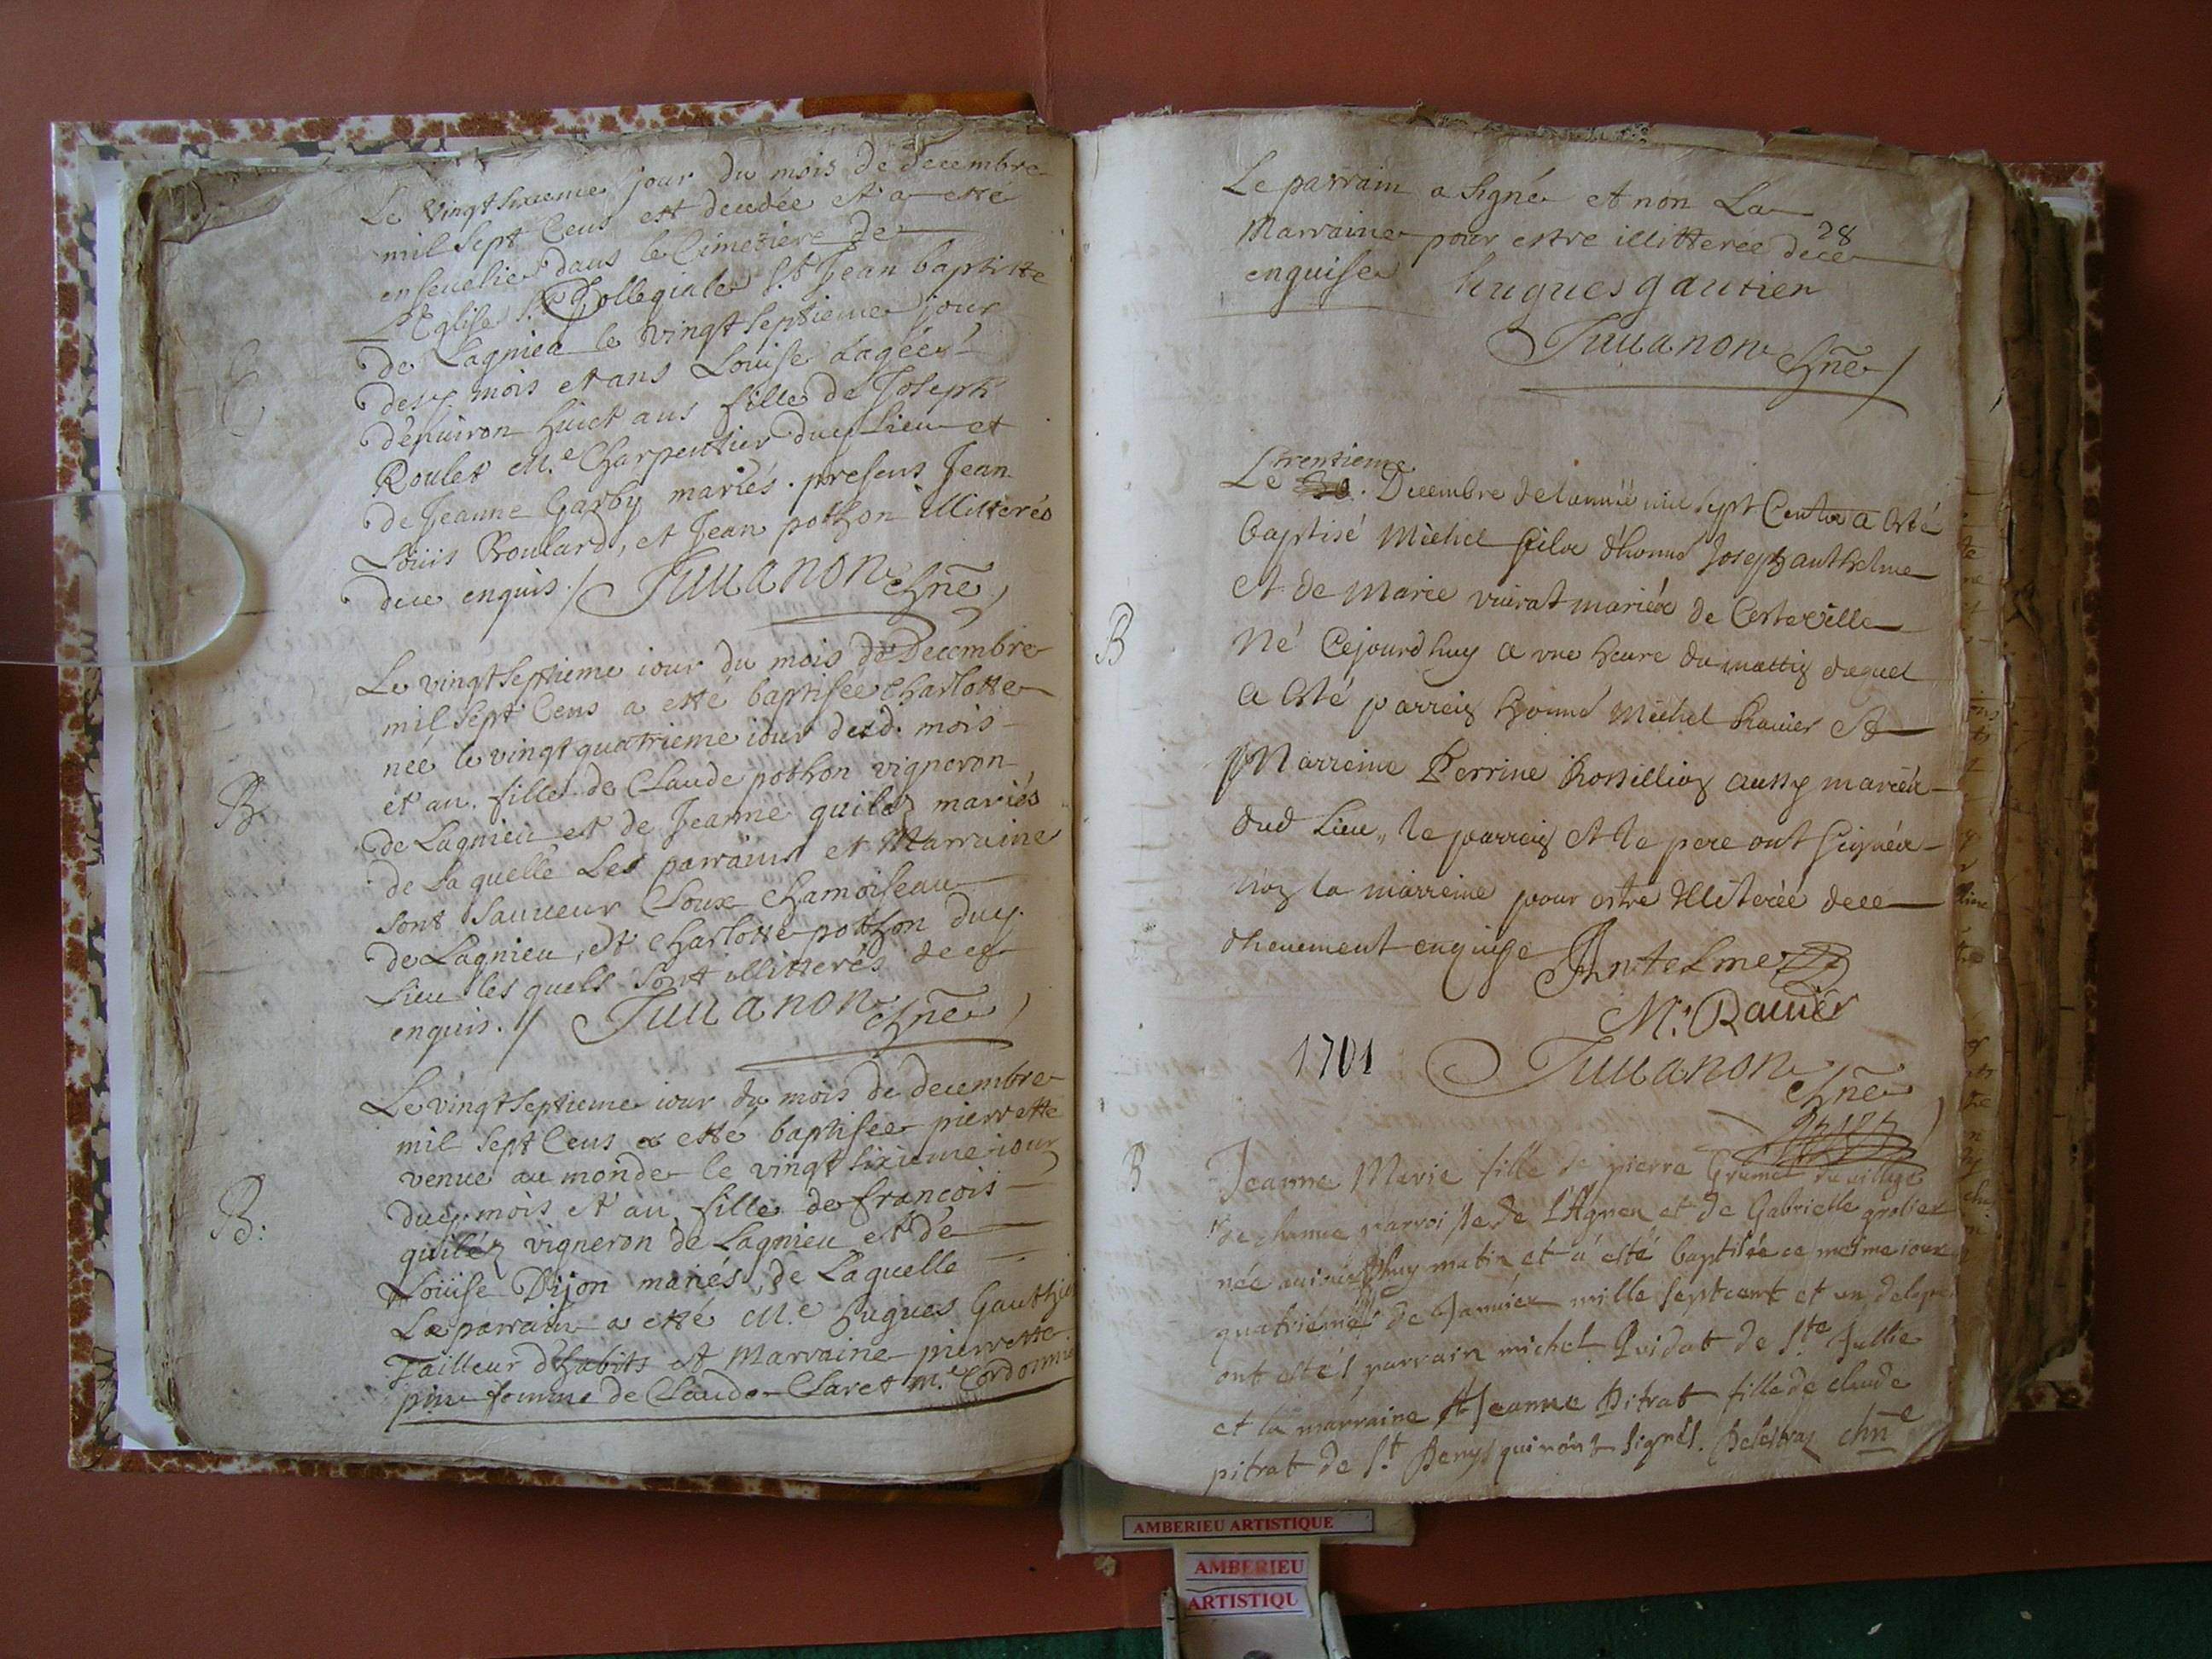 Le Vingt sixieme jour du mois de decembre
mil sept Cens est decedée et a esté
enseuelie dans le Cimetiere de
L'Eglise Collegiale St Jean baptiste
de Lagnieu le vingt septieme jour
desq. mois et ans Louise âagée
d'enuiron huict ans fille de Joseph
Roulet M.e Charpentier duq. Lieu et
de Jeanne Garby mariés. presens Jean
Louis Roulard, et Jean pothon illitterés
dece enquis./ Juuanon Chne
B
Le vingt septieme iour du mois de Decembre
mil sept Cens a esté baptisée Charlotte
née le vingt quatrieme iour dud. mois
et an. fille de Claude pothon vigneron
de Lagnieu et de Jeanne quiles mariés
de laquelle Les parrain et Marraine
sont Sauueur Cloux Chamoiseau
de Lagnieu, et Charlotte pothon duq.
Lieu les quels sont illitterés dece
enquis./ Juuanon Chne
B:
Le vingt septieme iour du mois de decembre
mil sept Cens a esté baptisée pierrette
venue au monde le vingt sixieme iour
duq. mois et an, fille de francois
quiléz vigneron de Lagnieu et de
Loüise Dijon mariés, de Laquelle
Le parrain a esté M.e hugues Gauthier
Tailleur d'habits et Marraine pierrette
femme de Claude Claret m.e Cordonnie
28
Le parrain a signé et non La
Marraine pour estre illitterée dece
enquise hugues gautier
Juuanon Chne/
B
trentieme
Le 30. Decembre de l'année mil sept Centz a esté
baptisé Michel filz d'honno Joseph anthelme
et de Marie vuirat mariéz de Ceste ville
né Cejourdhuy a vne heure du mattin duquel
a esté parrein honno Michel Rauier Et
Marreine Perrine Rossillion aussy mariéz
dud Lieu, le parrein Et le pere ont signéz
non la marreine pour estre Illiterée dece
dheuement enquise Antelme
M. Rauier
1701 Juuanon
Chne
B
Jeanne Marie fille de pierre Grumet du village
de chanue parroisse de L'Agneu et de Gabrielle grolier
née auiourdhuy matin et a esté baptisée ce mesme iour
quatriéme de Januier mille septcent et un
ont estés parrain michel Quidat de Ste Jullie
et la marraine Jeanne Pitrat fille de claude
pitrat de St Denys qui n'ont signés. Delestraz chne
AMBERIEU ARTISTIQUE
AMBERIEU
ARTISTIQU